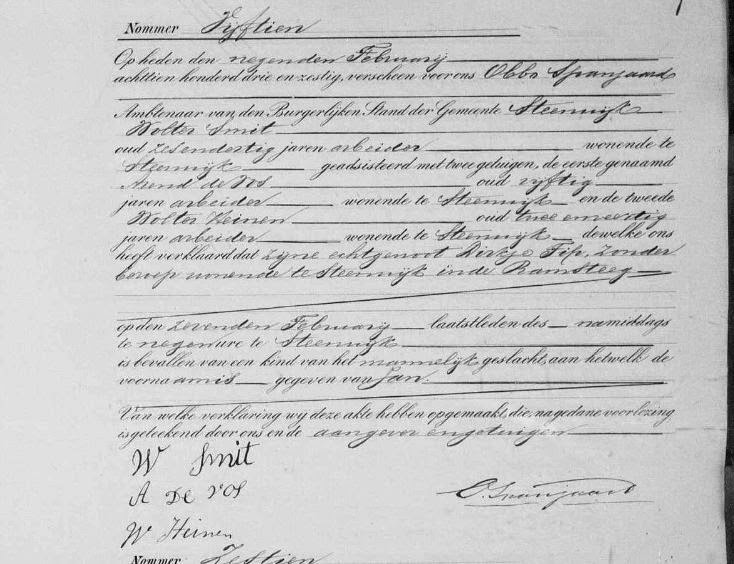 Nommer Vijftien
Op heden den negenden February
achttien honderd drie en zestig, verscheen voor ons Obbo Spanjaard
Ambtenaar van den Burgerlijken Stand der Gemeente Steenwijk
Wolter Smit
oud zesendertig jaren arbeider wonende te
Steenwijk geadsisteerd met twee getuigen, de eerste genaamd
Arend de Vos oud vijftig
jaren arbeider wonende te Steenwijk en de tweede
Wolter Heinen oud twee en veertig
jaren arbeider wonende te Steenwijk dewelke ons
heeft verklaard dat zijne echtgenoot Dirkje, Zonder
beroep wonende te Steenwijk in de Ramsteeg
op den zevenden February laatstleden des namiddags
te negen ure te Steenwijk
is bevallen van een kind van het mannelijk geslacht, aan hetwelk de
voornaam is gegeven van Jan.
Van welke verklaring wij deze akte hebben opgemaakt, die, na gedane voorlezing
is geteekend door ons en de aangever en getuigen
W Smit
A de Vos
O. Spanjaard
W Heinen
Nommer Zestien